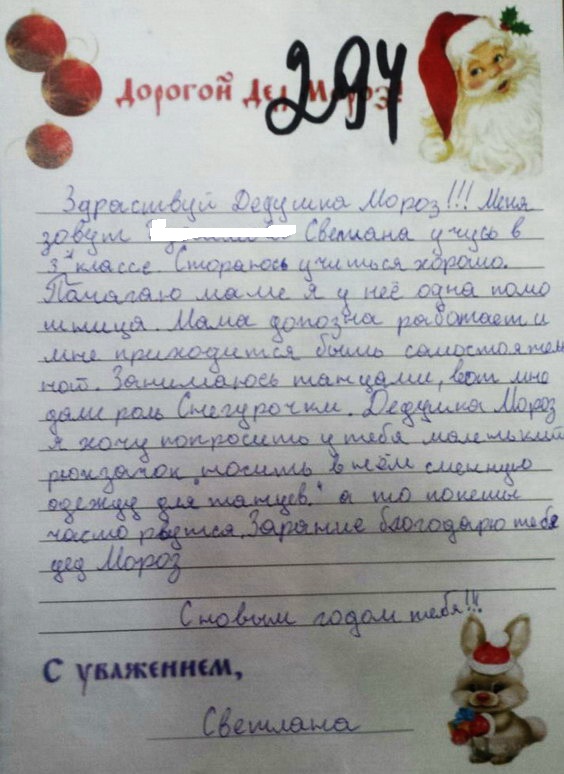 Дорогой Дед Мороз!
294
Здраствуй Дедушка Мороз!!! Меня
зовут Светлана учусь в
3 классе. Стораюсь учиться хорошо.
Памагаю маме я у неё одна помо
шница. Мама допозна работает и
мне приходится быть самостоятель
ной. Занимаюсь танцами, вот мне
дали роль Снегурочки. Дедушка Мороз
я хочу попросить у тебя маленький
рюкзачок "носить в нём сменную
одежду для танцев." а то покеты
часто рвутся. Зарание благодарю тебя
дед Мороз
С новым годом тебя!!!
С уважением,
Светлана